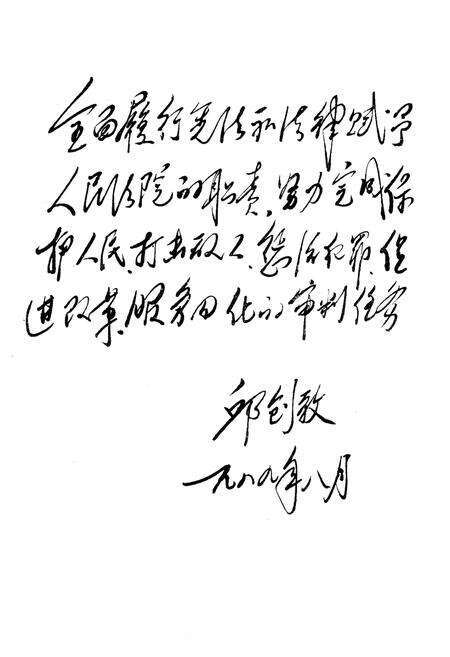 全面履行宪法和法律赋予
人民法院的职责，努力完成保
护人民、打击敌人、惩治犯罪、促
进改革、服务四化的审判任务
邱创教
一九八九年八月